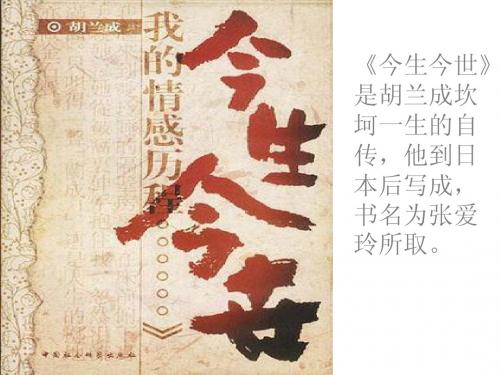 胡兰成
我的情感历程。。。。。。》
今生今世
中国社会科学出版社
《今生今世》
是胡兰成坎
坷一生的自
传，他到日
本后写成，
书名为张爱
玲所取。